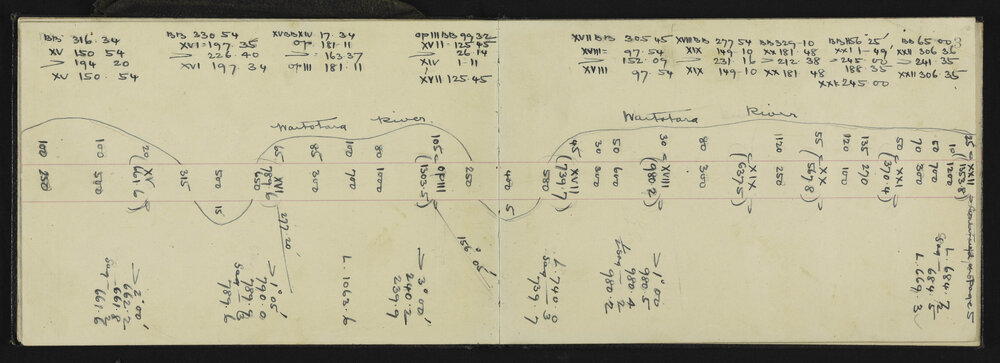 BB 316.34
XV 150 54
> 194 20
XV 150. 54
BB 330 54
XVI = 197. 35
> 226.40
XVI 197. 34
XVBBXIV 17. 34
OP 181.11
> 163.37
OPIII 181.11
OPIII BB 99 32
XVII = 125.45
> 26.14
XIV 1.11
XVII 125.45
XVII BB 305 45
XVIII = 97. 54
> 152.09
XVIII 97. 54
XVIII BB 277 54
XIX 149.10
> 231. 16
XIX 149.10
BB 329.10
XX 181. 48
> 212. 38
XX 181. 48
BB 156. 25
XXI 1. 49
> 245. 00
188. 35
XXI 245.00
BB 65.00
XXII 306 36
> 241. 35
XXII 306.35
Waitotara River
Waitotara River
100 250
100 500
20 XV (661.6)
315
500 15
65 XVI 650 (789.6)
277.20'
85 300
100 700
80 1000
105 OPIII (1303.5)
156° 00'
250
400 5
500
45 XVII (739.7)
30 300
50 600
30 XVIII (980.2)
80 300
XIX (637.5)
1120 250
55 XX (567.8)
120 100
135 270
50 XXI (370.4)
70 300
60 700
10 1200
25 XXII (1153.8)
> 2°00'
662.2
661.8
Say 661.6
> 1°05'
790.0
789.8
Say 789.6
L. 1063.6
> 3°00'
240.2
239.9
L. 740.0
3
Say 739.7
> 1°00'
980.5
980.4
Say 980.2
L. 684.7
2
Say 684.5
L. 669.3